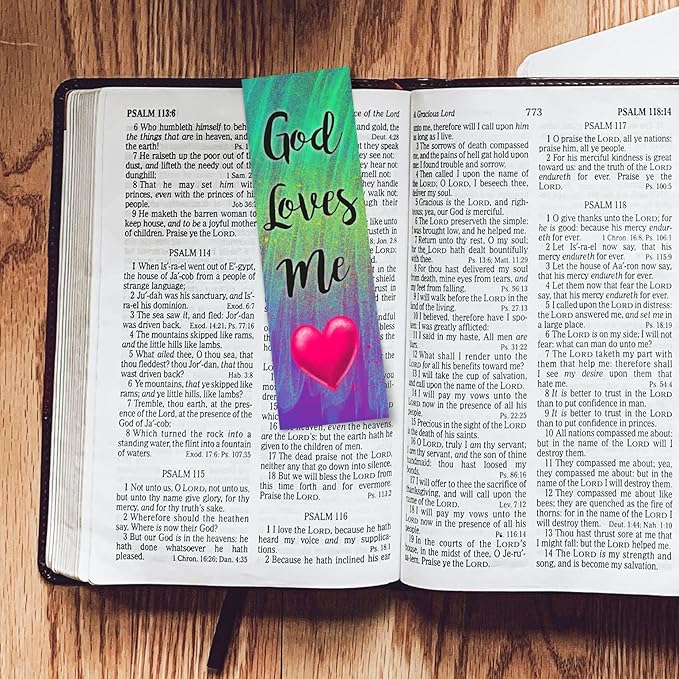 PSALM 113:6
6 Who humbleth himself to beh
the things that are in heaven, and
the earth! Ps. 1
7 He raiseth up the poor out of th
dust, and lifteth the needy out of the
dunghill; 1 Sam. 2
8 That he may set him with
princes, even with the princes of his
people. Job 36:
9 He maketh the barren woman to
keep house, and to be a joyful mother
of children. Praise ye the LORD.
PSALM 114
1 When Is'-ra-el went out of E'-gypt,
the house of Ja'-cob from a people of
strange language;
2 Ju'-dah was his sanctuary, and Is'-
ra-el his dominion. Exod. 6:7
3 The sea saw it, and fled: Jor'-dan
was driven back. Exod. 14:21, Ps. 77:16
4 The mountains skipped like rams,
and the little hills like lambs.
5 What ailed thee, O thou sea, that
thou fleddest? thou Jor'-dan, that thou
wast driven back? Hab. 3:8
6 Ye mountains, that ye skipped like
rams; and ye little hills, like lambs?
7 Tremble, thou earth, at the pres-
ence of the Lord, at the presence of the
God of Ja'-cob;
8 Which turned the rock into a
standing water, the flint into a fountain
of waters. Exod. 17:6; Ps. 107:35
PSALM 115
1 Not unto us, O LORD, not unto us,
but unto thy name give glory, for thy
mercy, and for thy truth's sake.
2 Wherefore should the heathen
say, Where is now their God?
3 But our God is in the heavens: he
hath done whatsoever he hath
pleased. 1 Chron. 16:26; Dan. 4:35
God
Loves
Me
ce of the Lord
and gold, the
Deut. 4:28
they speak
see not:
hey hear not:
mell not:
they handle
walk not
their
like unto
heaven, even the heavens,
are the LORD's: but the earth hath he
given to the children of men.
17 The dead praise not the LORD,
neither any that go down into silence.
18 But we will bless the LORD from
this time forth and for evermore.
Praise the LORD. Ps. 113:2
PSALM 116
1 I love the LORD, because he hath
heard my voice and my supplica-
tions. Ps. 18:1
2 Because he hath inclined his ear
A Gracious Lord 773 PSALM 118:14
unto me, therefore will I call upon him
as long as I live.
3 The sorrows of death compassed
me, and the pains of hell gat hold upon
me: I found trouble and sorrow.
4 Then called I upon the name of the
LORD; O LORD, I beseech thee,
deliver my soul.
5 Gracious is the LORD, and right-
eous; yea, our God is merciful.
6 The LORD preserveth the simple:
I was brought low, and he helped me.
7 Return unto thy rest, O my soul;
for the LORD hath dealt bountifully
with thee. Ps. 13:6; Matt. 11:29
8 For thou hast delivered my soul
from death, mine eyes from tears, and
my feet from falling. Ps. 56:13
9 I will walk before the LORD in the
land of the living. Ps. 27:13
10 I believed, therefore have I spo-
ken: I was greatly afflicted:
11 I said in my haste, All men are
liars. Ps. 31:22
12 What shall I render unto the
LORD for all his benefits toward me?
13 I will take the cup of salvation,
and call upon the name of the LORD.
14 I will pay my vows unto the
LORD now in the presence of all his
people. Ps. 22:25
15 Precious in the sight of the LORD
is the death of his saints.
16 O LORD, truly I am thy servant;
I am thy servant, and the son of thine
handmaid: thou hast loosed my
bonds. Ps. 86:16
17 I will offer to thee the sacrifice of
thanksgiving, and will call upon the
name of the LORD. Lev. 7:12
18 I will pay my vows unto the
LORD now in the presence of all his
people. Ps. 116:14
19 In the courts of the LORD's
house, in the midst of thee, O Je-ru'-
sa-lem. Praise ye the LORD.
PSALM 117
1 O praise the LORD, all ye nations:
praise him, all ye people.
2 For his merciful kindness is great
toward us: and the truth of the LORD
endureth for ever. Praise ye the
LORD. Ps. 100:5
PSALM 118
1 O give thanks unto the LORD; for
he is good: because his mercy endur-
eth for ever. 1 Chron. 16:8, Ps. 106:1
2 Let Is'-ra-el now say, that his
mercy endureth for ever. Ps. 115:9
3 Let the house of Aa'-ron now say,
that his mercy endureth for ever.
4 Let them now that fear the LORD
say, that his mercy endureth for ever.
5 I called upon the LORD in distress:
the LORD answered me, and set me in
a large place. Ps. 18:19
6 The LORD is on my side; I will not
fear: what can man do unto me?
7 The LORD taketh my part with
them that help me: therefore shall
I see my desire upon them that
hate me. Ps. 54:4
8 It is better to trust in the LORD
than to put confidence in man.
9 It is better to trust in the LORD
than to put confidence in princes.
10 All nations compassed me about:
but in the name of the LORD will I
destroy them.
11 They compassed me about; yea,
they compassed me about: but in the
name of the LORD I will destroy them.
12 They compassed me about like
bees; they are quenched as the fire of
thorns: for in the name of the LORD I
will destroy them. Deut. 1:44; Nah. 1:10
13 Thou hast thrust sore at me that
I might fall: but the LORD helped me.
14 The LORD is my strength and
song, and is become my salvation.